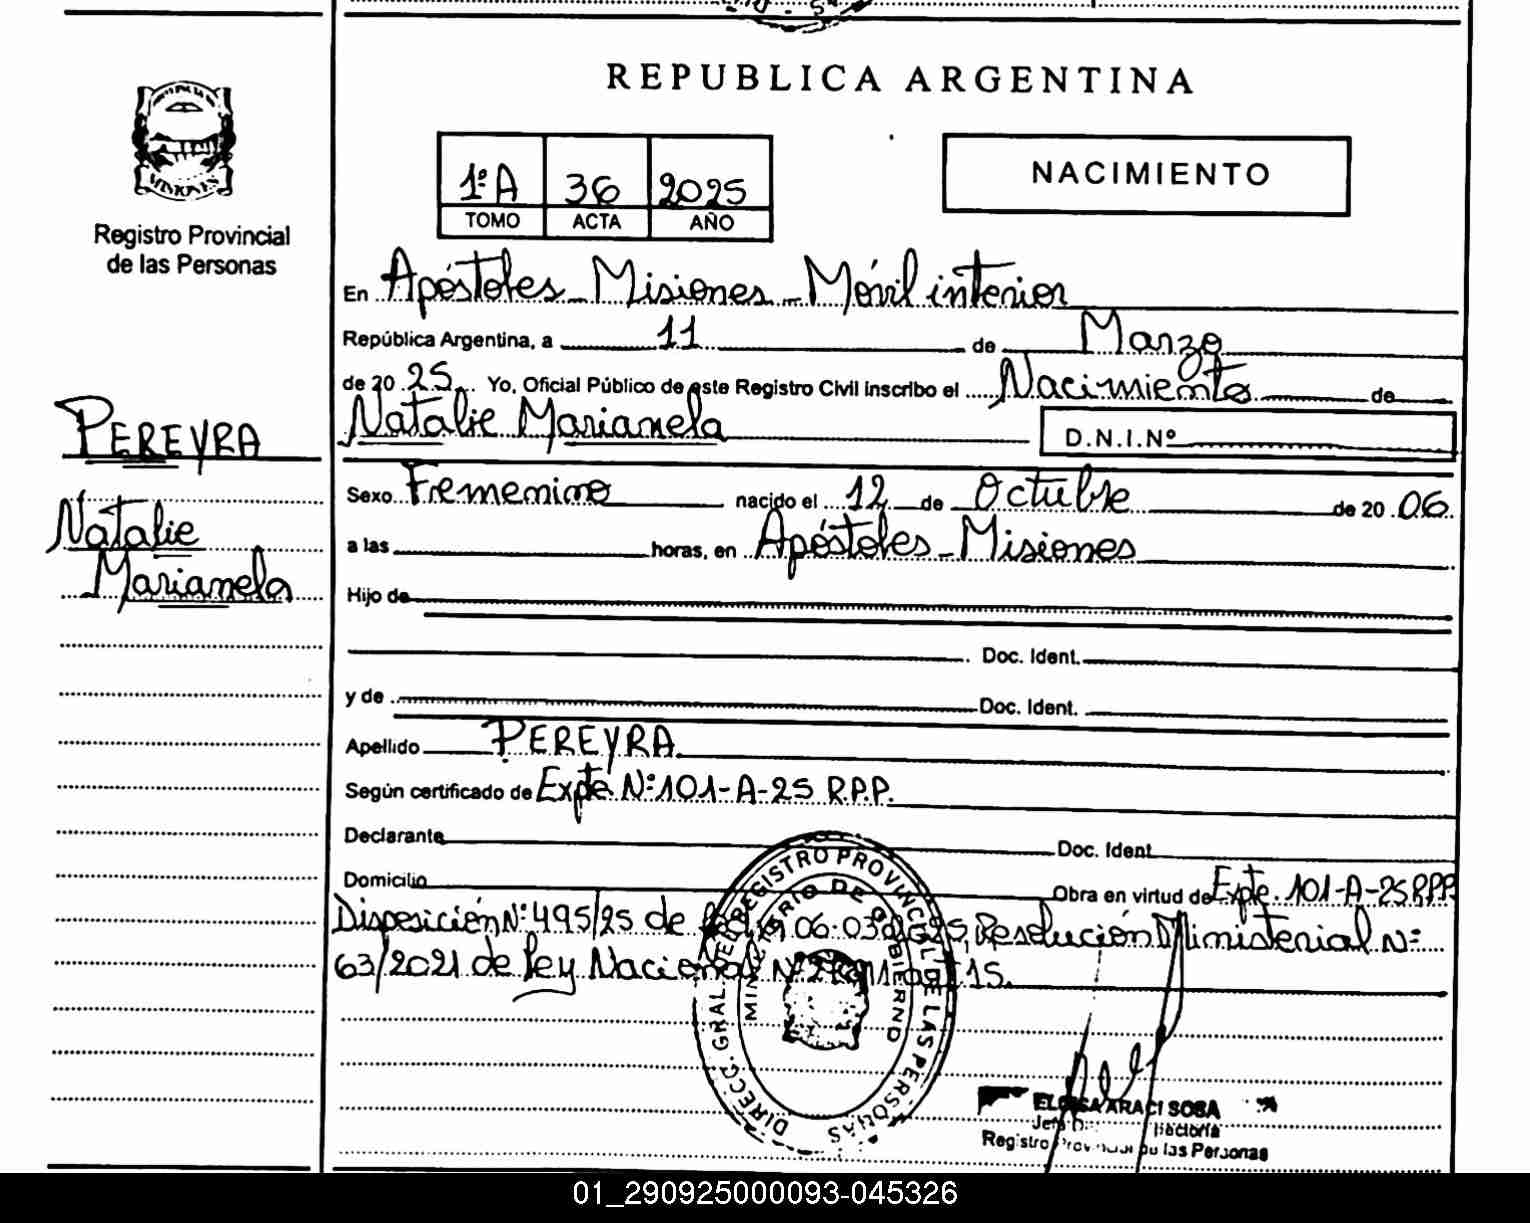 REPUBLICA ARGENTINA
MISIONES
Registro Provincial
de las Personas
1ºA 36 2025
TOMO ACTA AÑO
NACIMIENTO
En Apóstoles - Misiones - Móvil interior
República Argentina, a 11 de Marzo
de 20 25 Yo, Oficial Público de este Registro Civil inscribo el Nacimiento de
Natalie Marianela D.N.I.Nº
PEREYRA
Natalie
Marianela
Sexo Femenino nacido el 12 de Octubre de 20 06
a las horas, en Apóstoles - Misiones
Hijo de
Doc. Ident.
y de Doc. Ident.
Apellido PEREYRA
Según certificado de Expte Nº:101-A-25 R.P.P.
Declarante Doc. Ident
Domicilio Obra en virtud de Expte. 101-A-25 RPP
Disposición Nº:495/25 de 06-03-2025, Resolución Ministerial Nº
63/2021 de Ley Nacional Nº 15.
DIRECC. GRAL. DEL REGISTRO PROVINCIAL DE LAS PERSONAS
MINISTERIO DE GOBIERNO
ELOISA ARACI SOSA
Registro Provincial de las Personas
01_290925000093-045326